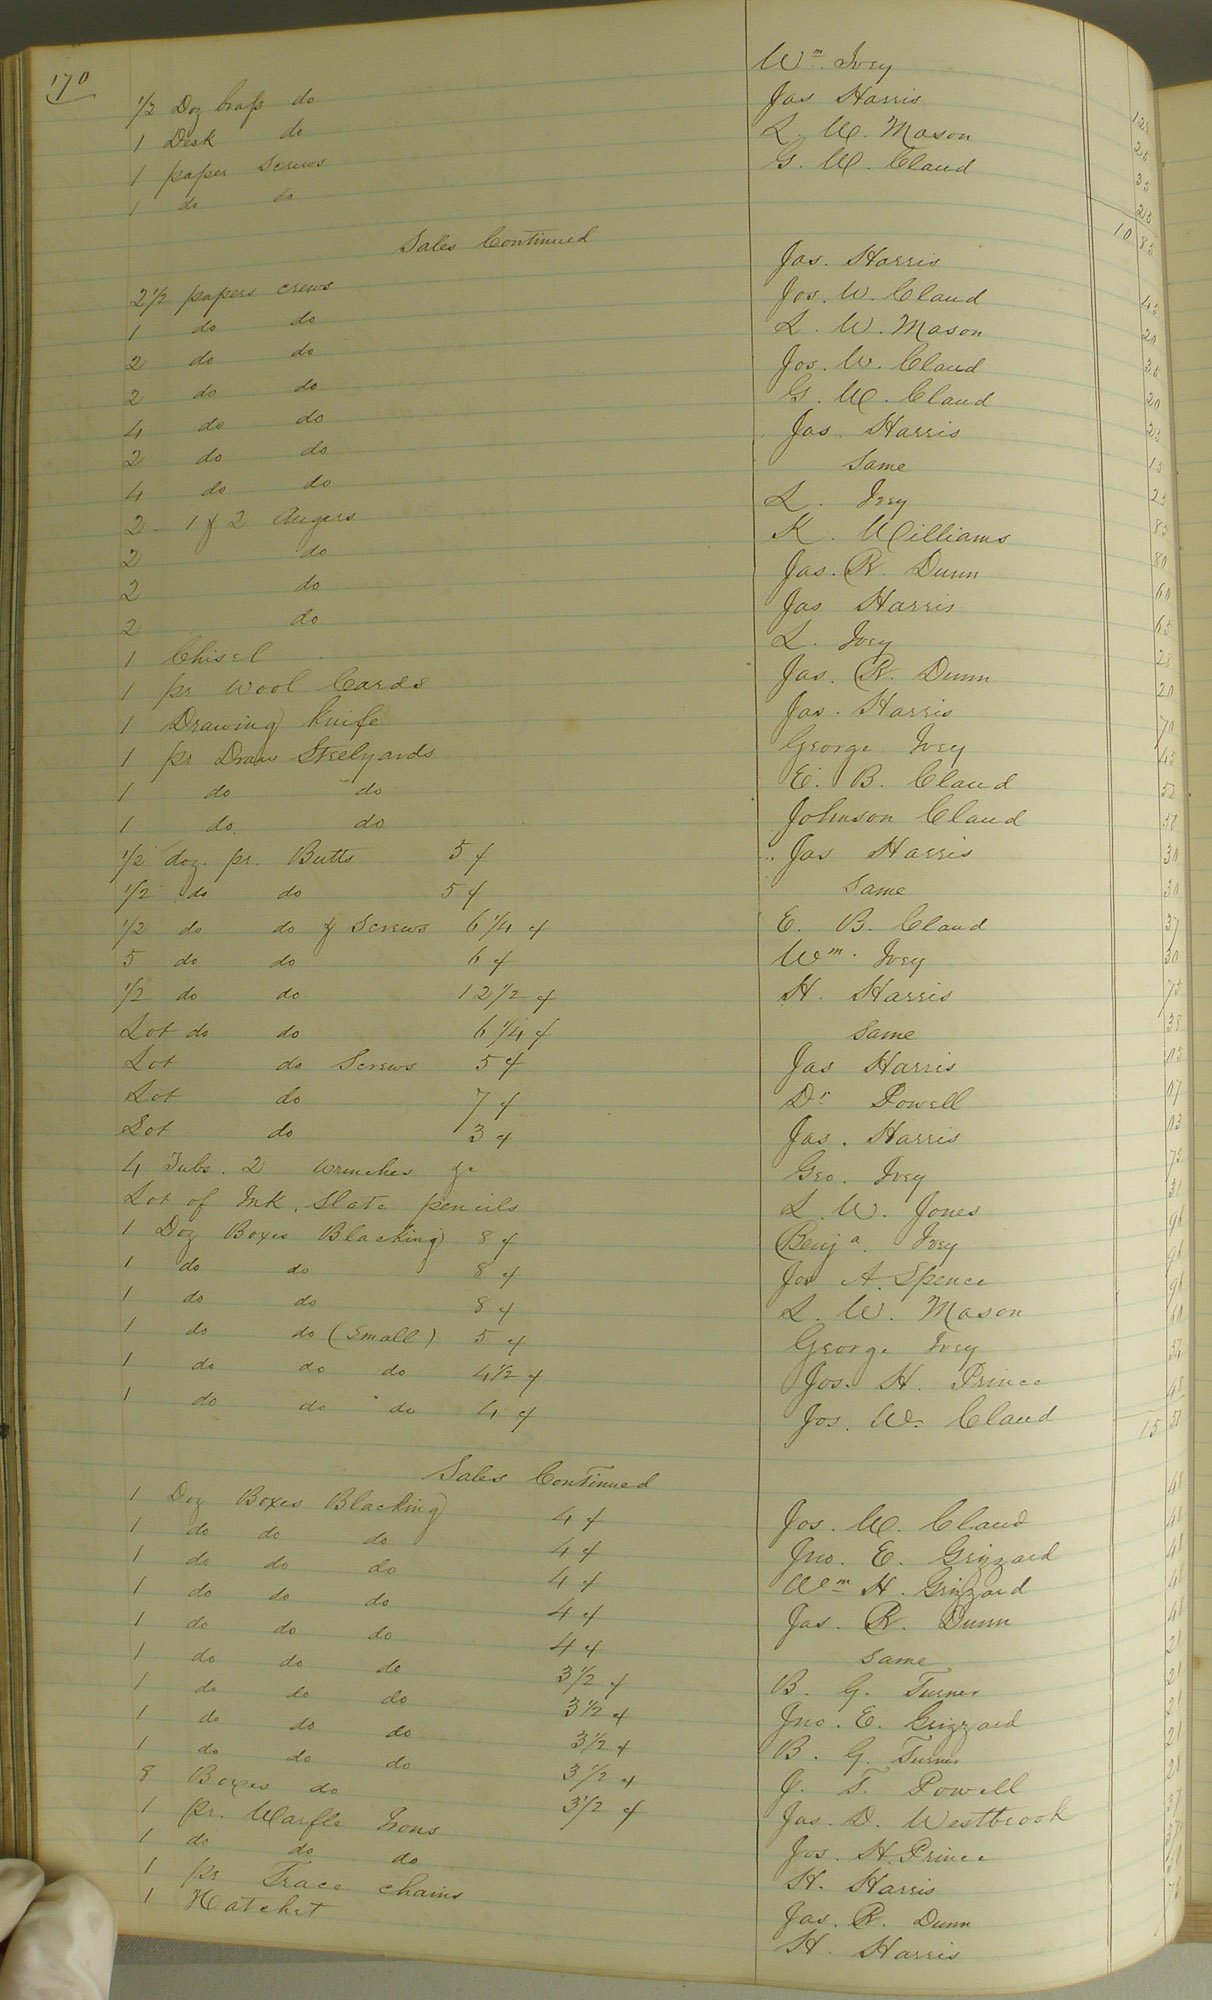 170
½ Doz brass do Wm. Ivey
1 Desk do Jas Harris 1 25
1 paper Screws L. W. Mason 25
1 do do G. W. Claud 25
10 85
Sales Continued
2½ papers crews Jas. Harris 45
1 do do Jos. W. Claud 20
2 do do L. W. Mason 35
2 do do Jos. W. Claud 20
4 do do G. W. Claud 25
2 do do Jas. Harris 15
4 do do Same 25
2 - 1 & 2 Augers L. Ivey 85
2 do K. Williams 80
2 do Jas. R. Dunn 60
2 do Jas Harris 65
1 Chisel L. Ivey 25
1 pr Wool Cards Jas. R. Dunn 20
1 Drawing Knife Jas. Harris 70
1 pr Draw Steelyards George Ivey 45
1 do do E. B. Claud 52
1 do do Johnson Claud 50
½ doz. pr. Butts 5 ¢ Jas Harris 30
½ do do 5 ¢ Same 30
½ do do & Screws 6¼ ¢ E. B. Claud 37
5 do do 6 ¢ Wm. Ivey 30
½ do do 12½ ¢ H. Harris 75
Lot do do 6¼ ¢ Same 38
Lot do Screws 5 ¢ Jas Harris 05
Lot do 7 ¢ Dr Powell 07
Lot do 3 ¢ Jas. Harris 03
4 Tubs. 2 Wrenches &c Geo. Ivey 75
Lot of Ink, Slate pencils L. W. Jones 31
1 Doz Boxes Blacking 8 ¢ Benja. Ivey 96
1 do do 8 ¢ Jos A. Spence 96
1 do do 8 ¢ L. W. Mason 96
1 do do (Small) 5 ¢ George Ivey 60
1 do do do 4½ ¢ Jos. H. Prince 54
1 do do do 4 ¢ Jos. W. Claud 48
15 51
Sales Continued
1 Doz Boxes Blacking 4 ¢ Jos. W. Claud 48
1 do do do 4 ¢ Jno. E. Grizzard 48
1 do do do 4 ¢ Wm H. Grizzard 48
1 do do do 4 ¢ Jas. R. Dunn 48
1 do do do 4 ¢ Same 48
1 do do do 3½ ¢ B. G. Turner 21
1 do do do 3½ ¢ Jno. E. Grizzard 21
1 do do do 3½ ¢ B. G. Turner 21
1 do do do 3½ ¢ J. T. Powell 21
8 Boxes do 3½ ¢ Jas. D. Westbrook 28
1 pr. Warfle Irons Jos. H. Prince 37
1 do do do H. Harris
1 pr Trace chains Jas. R. Dunn
1 Hatchet H. Harris